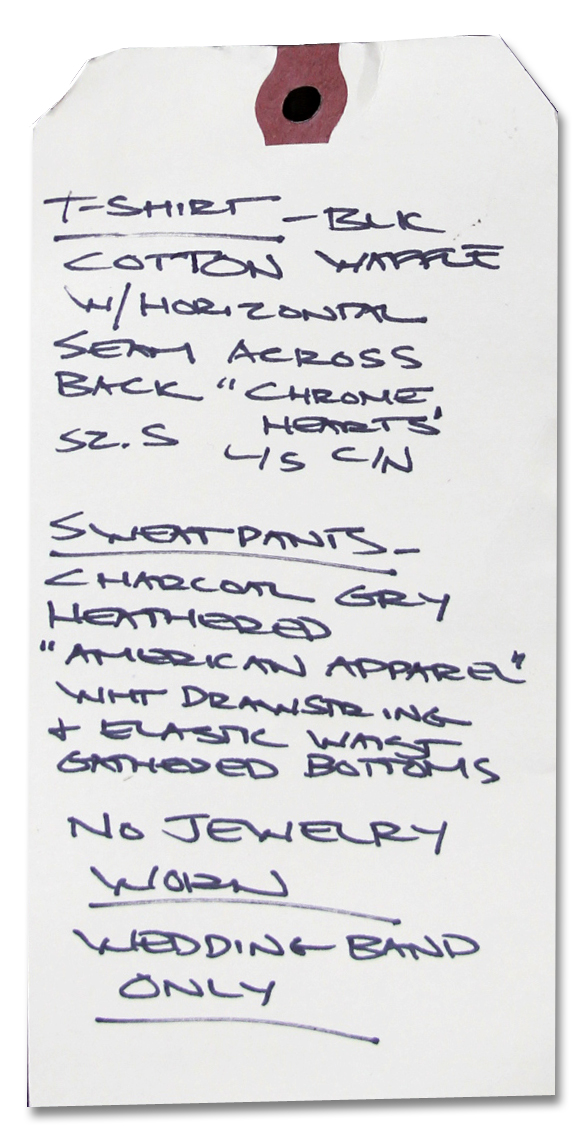 T-SHIRT - BLK
COTTON WAFFLE
W/HORIZONTAL
SEAM ACROSS
BACK "CHROME
HEARTS"
SZ. S L/S C/N
SWEATPANTS -
CHARCOAL GRY
HEATHERED
"AMERICAN APPAREL"
WHT DRAWSTRING
+ ELASTIC WAIST
GATHERED BOTTOMS
NO JEWELRY
WORN
WEDDING BAND
ONLY